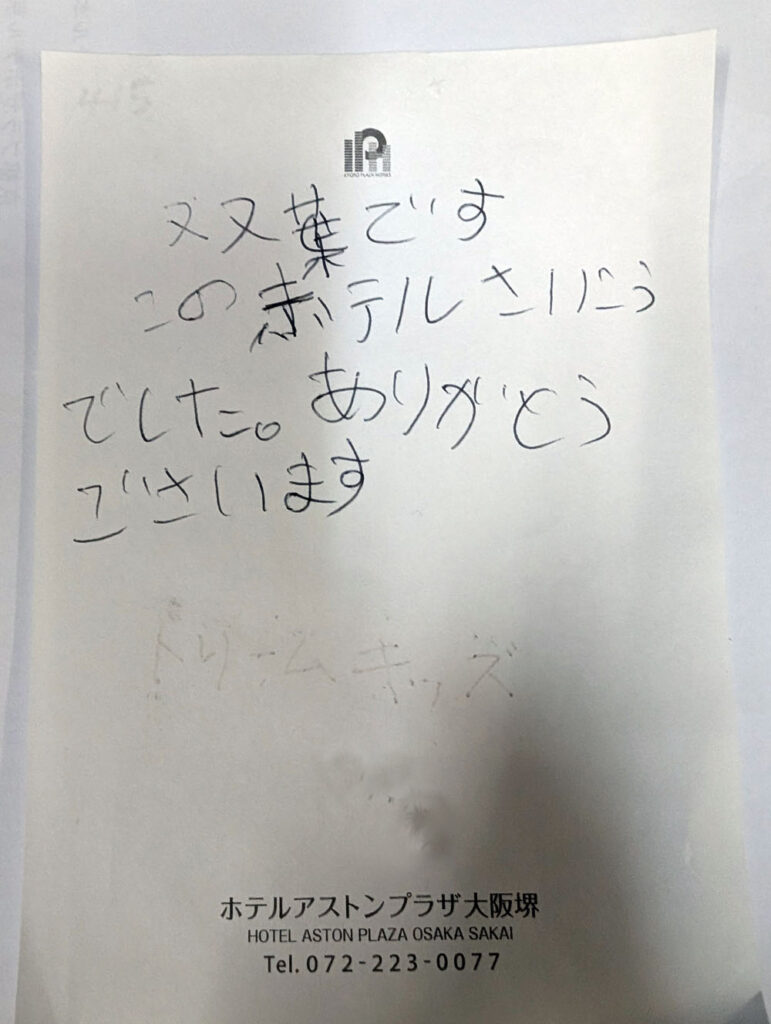 415
双葉です
このホテルさいこう
でした。ありがとう
ございます
ドリームキッズ
ホテルアストンプラザ大阪堺
HOTEL ASTON PLAZA OSAKA SAKAI
Tel. 072-223-0077